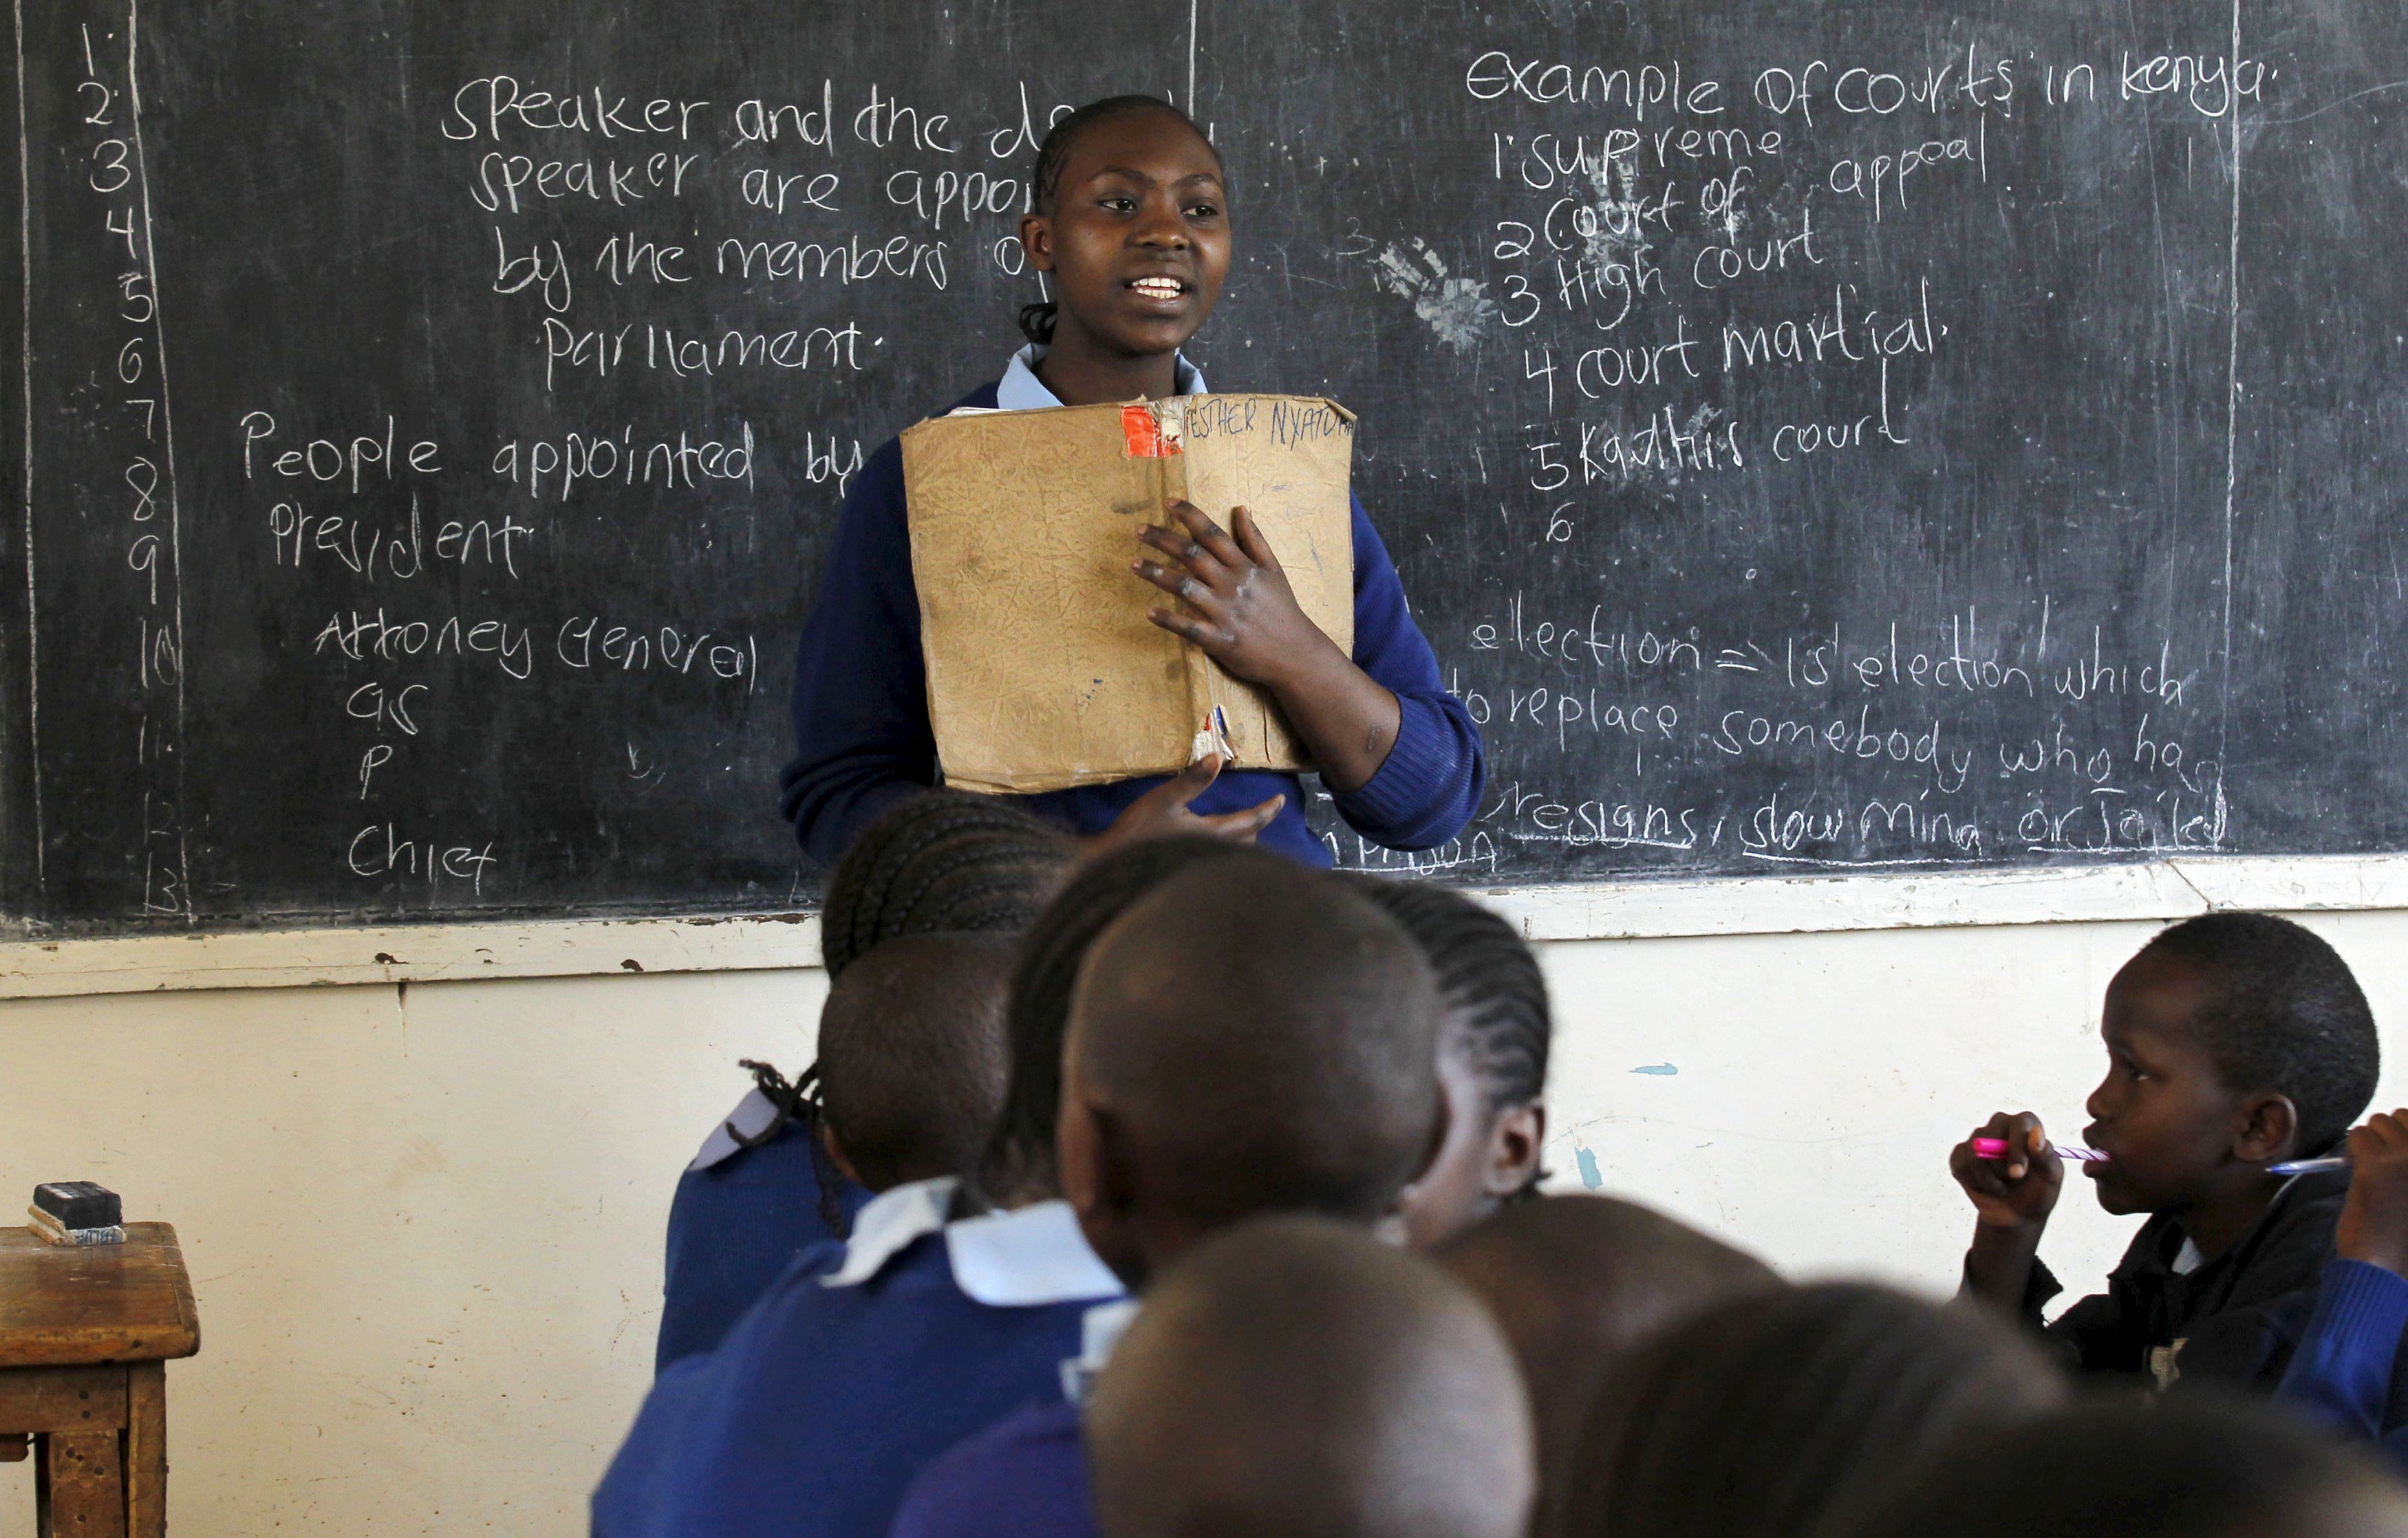 1
2
3
4
5
6
7
8
9
10
11
12
13
Speaker and the
speaker are appoi
by the members o
Parliament.
People appointed by
President.
Attorney General
as
P
Chief
ESTHER
Example of courts in Kenya.
1. Supreme
2 Court of appeal
3 High court
4 court martial.
5 Kadhis court
6
election = is election which
to replace somebody who ha
resigns, slow mind or Jailed